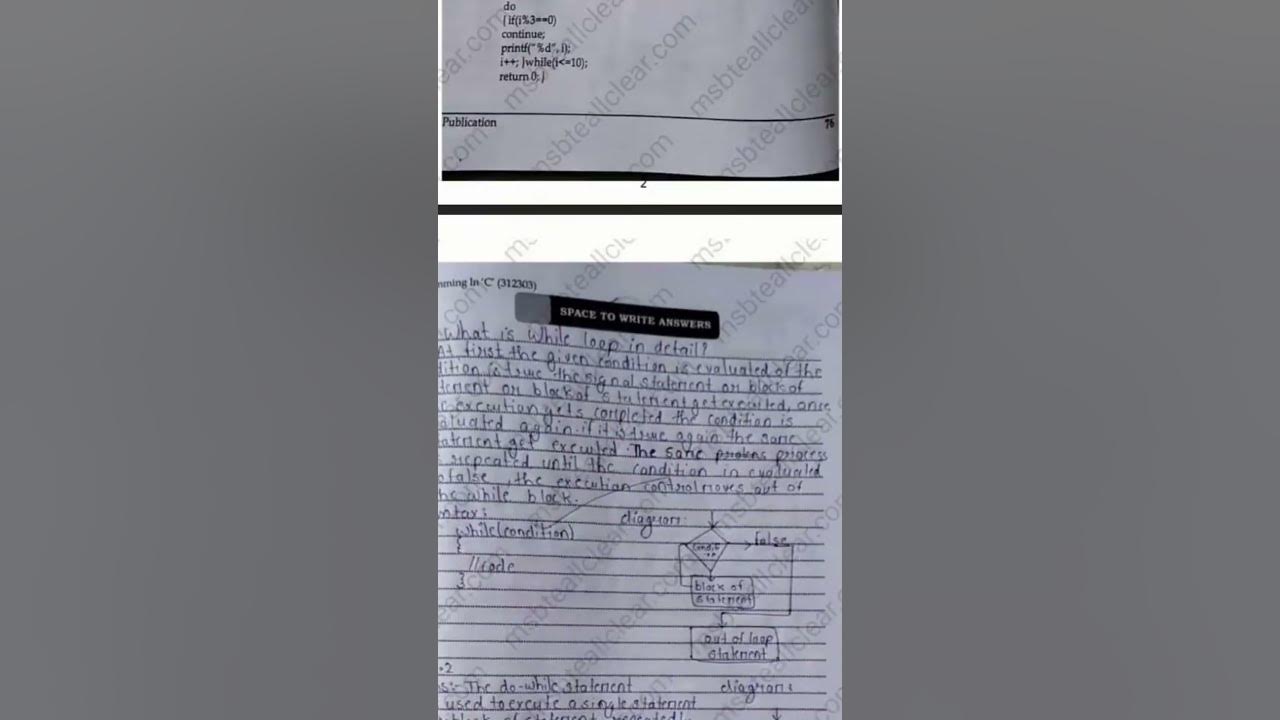 do
{ if(i%3==0)
continue;
printf("%d", i);
i++; }while(i<=10);
return 0; }
Publication 76
2
mming In 'C' (312303)
SPACE TO WRITE ANSWERS
What is while loop in detail?
At first the given condition is evaluated of the
dition is true the signal statement or block of
tement or block of statement get executed, once
execution gets completed the condition is
aluated again. if it is true again the same
atement get executed. The same process
s repeated until the condition in evaluated
o false, the execution control moves out of
he while block.
ntax:
diagram:
while(condition)
{
//code
}
condit
false
block of
statement
out of loop
statement
.2
s:- The do-while statement
diagram:
used to execute a single statement
block of statement repeated
msbteallclear.com